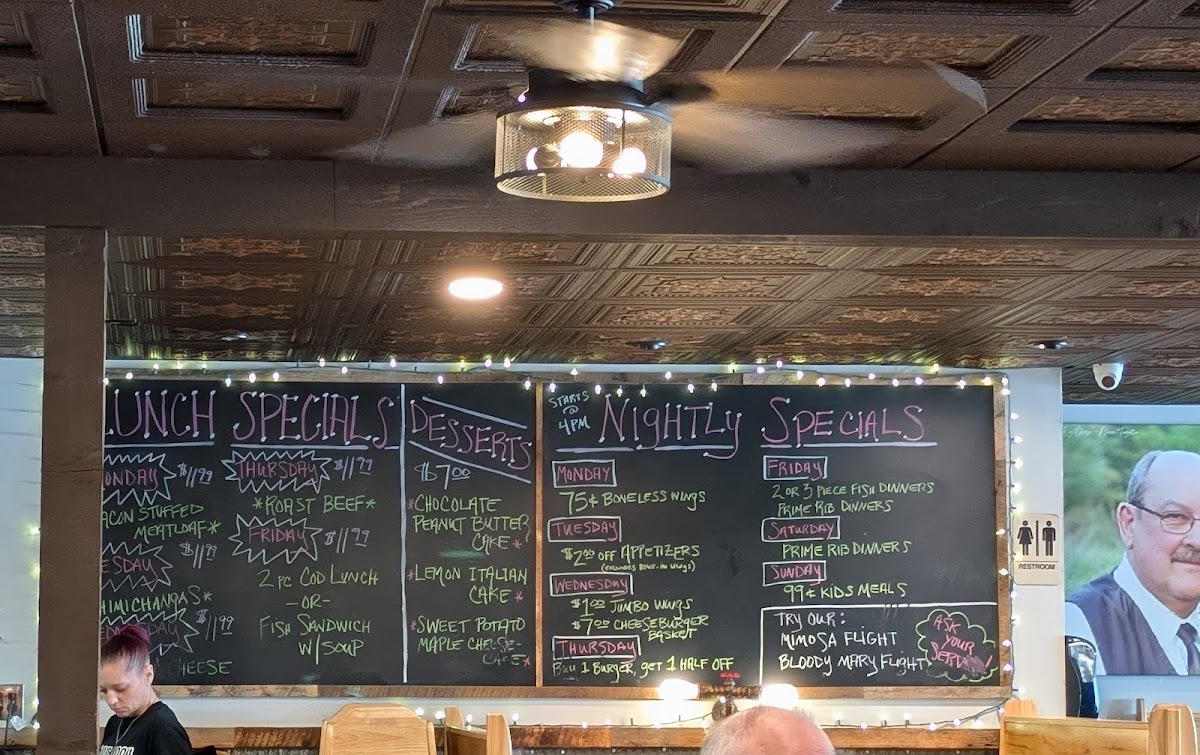 LUNCH SPECIALS
MONDAY $11.99
BACON STUFFED
MEATLOAF*
$11.99
CHIMICHANGAS*
$11.99
CHEESE
THURSDAY $11.99
*ROAST BEEF*
FRIDAY $11.99
2 PC COD LUNCH
-OR-
FISH SANDWICH
W/ SOUP
DESSERTS
$7.00
*CHOCOLATE
PEANUT BUTTER
CAKE*
*LEMON ITALIAN
CAKE*
*SWEET POTATO
MAPLE CHEESE-
CAKE*
STARTS
@
4PM
NIGHTLY SPECIALS
MONDAY
75¢ BONELESS WINGS
TUESDAY
$2.00 OFF APPETIZERS
(EXCLUDES BONE-IN WINGS)
WEDNESDAY
$1.00 JUMBO WINGS
$7.00 CHEESEBURGER
BASKET
THURSDAY
BUY 1 BURGER, GET 1 HALF OFF
FRIDAY
2 OR 3 PIECE FISH DINNERS
PRIME RIB DINNERS
SATURDAY
PRIME RIB DINNERS
SUNDAY
99¢ KIDS MEALS
TRY OUR:
MIMOSA FLIGHT
BLOODY MARY FLIGHT
ASK
YOUR
SERVER!
RESTROOM